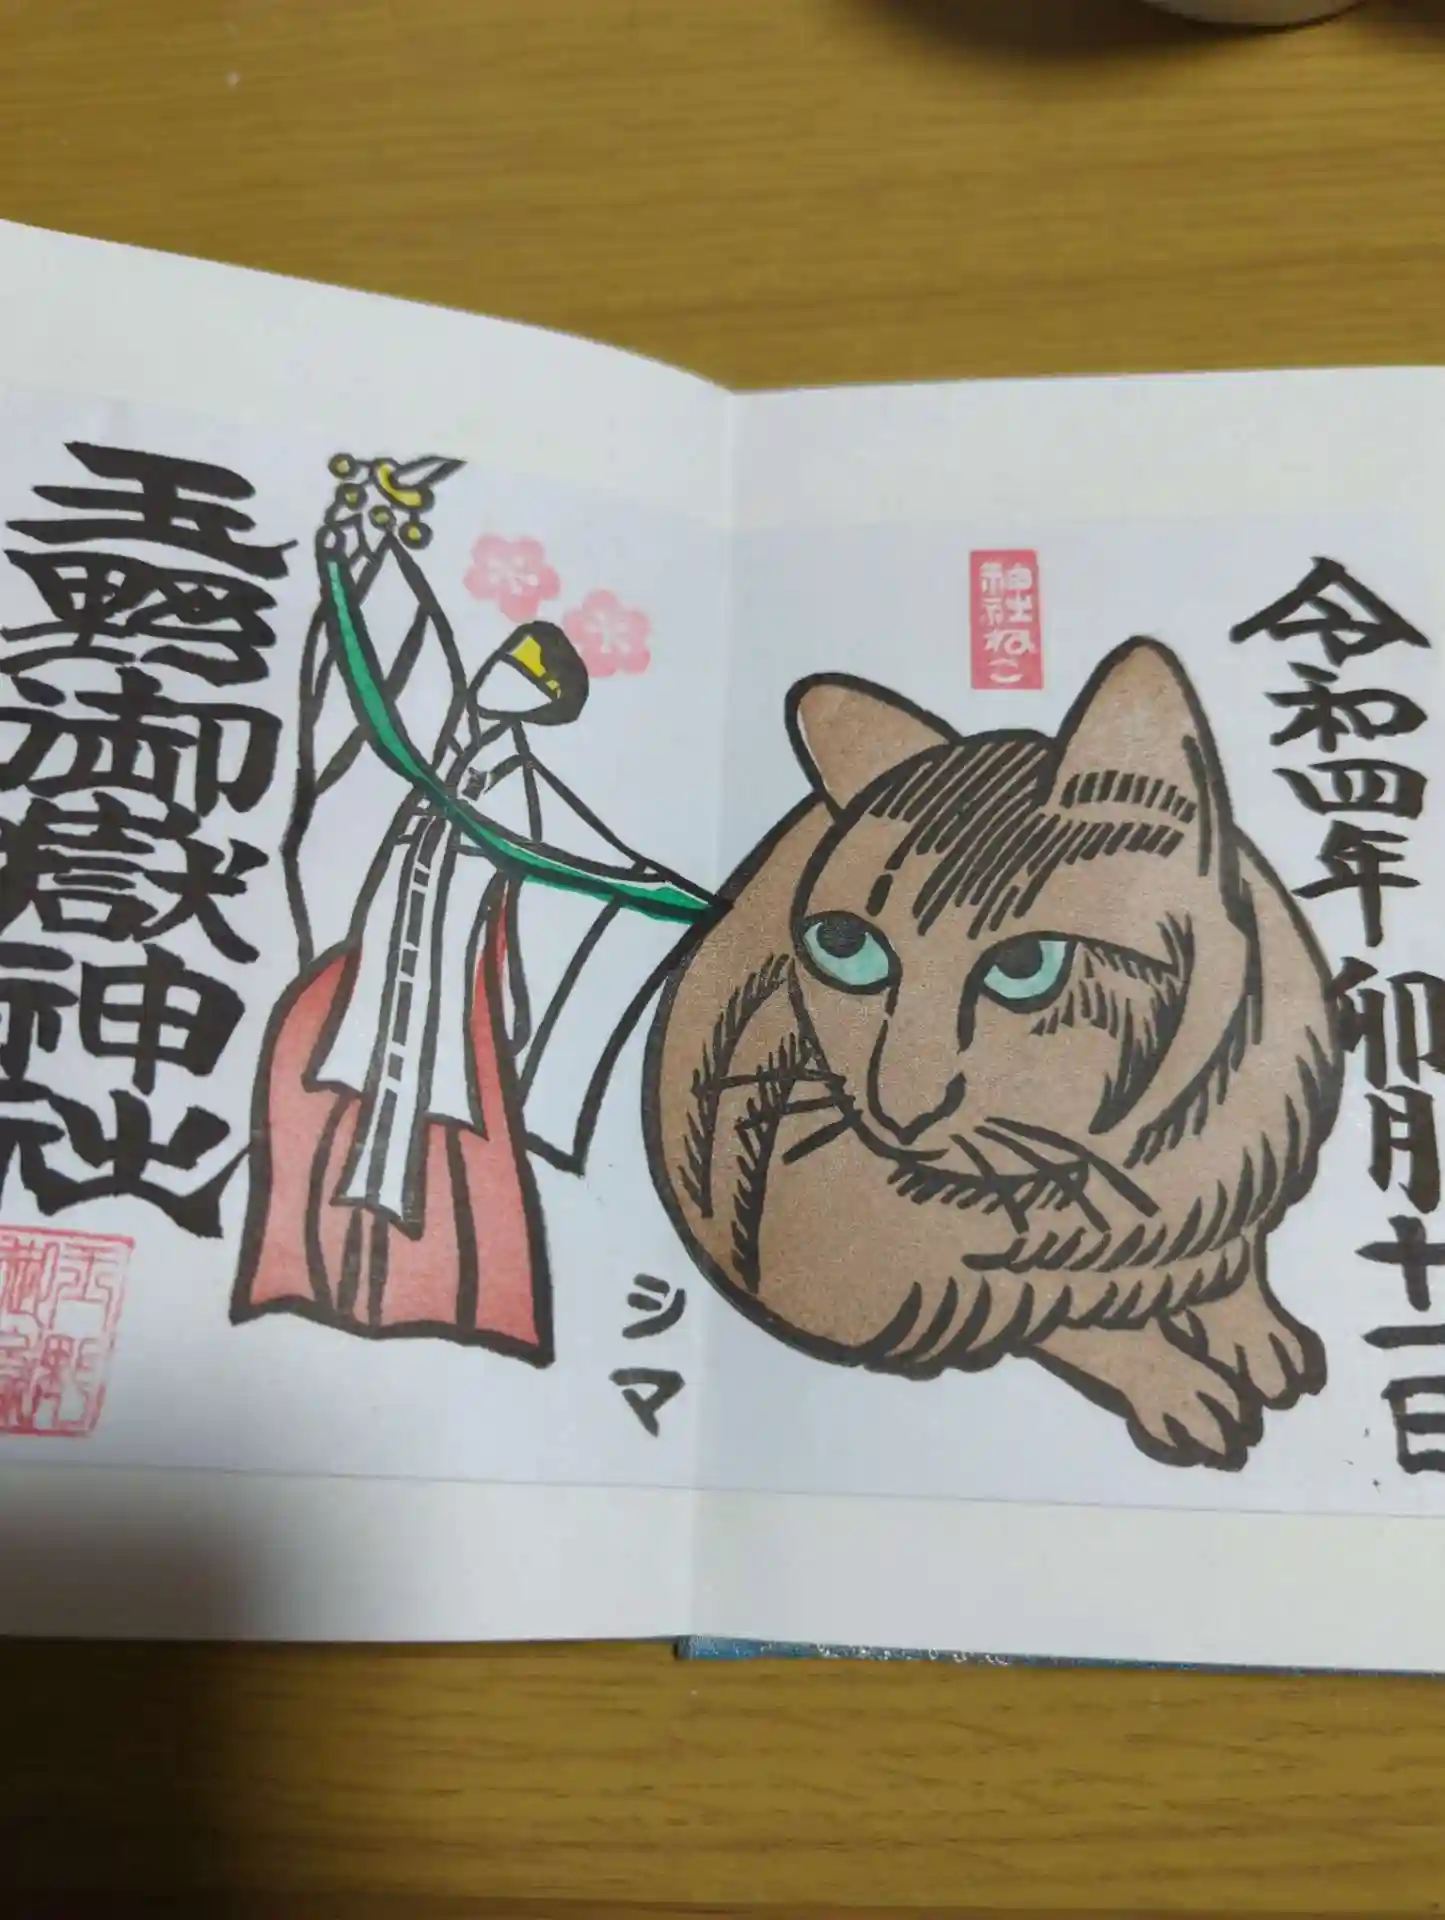 令和四年卯月十一日
神社ねこ
シマ
玉野御嶽神社
玉野
御嶽